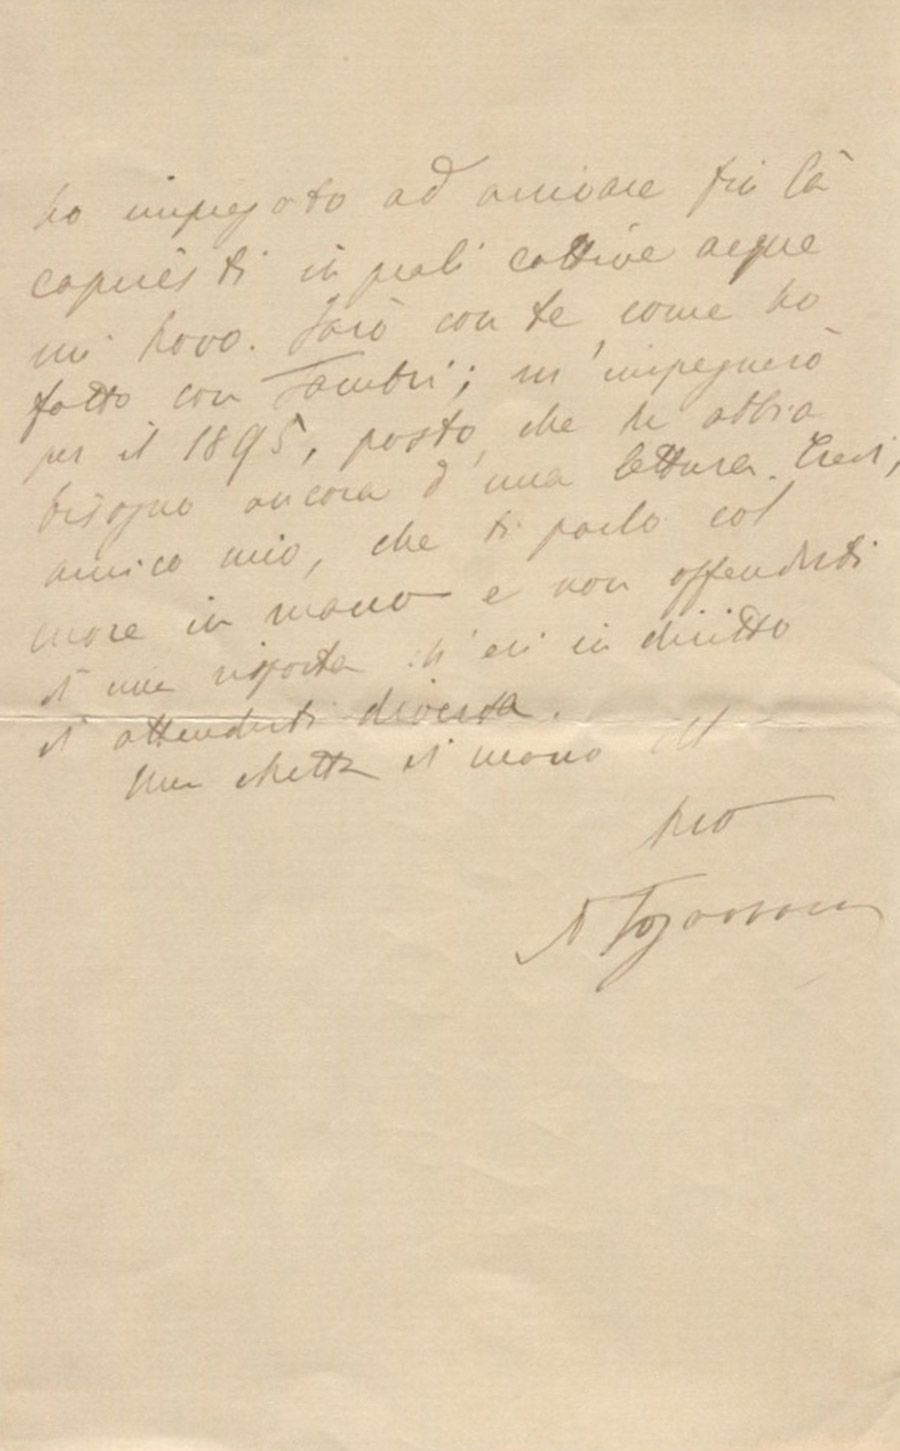 ho impiegato ad arrivare fin là
capiresti in quali cattive acque
mi trovo. Farò con te, come ho
fatto con Fambri; m'impegnerò
per il 1895, posto, che tu abbia
bisogno ancora d'una lettura. Credi,
amico mio, che ti parlo col
cuore in mano e non offenderti
di una risposta ch'eri in diritto
di attenderti diversa.
Una stretta di mano dal
tuo
A Fogazzaro